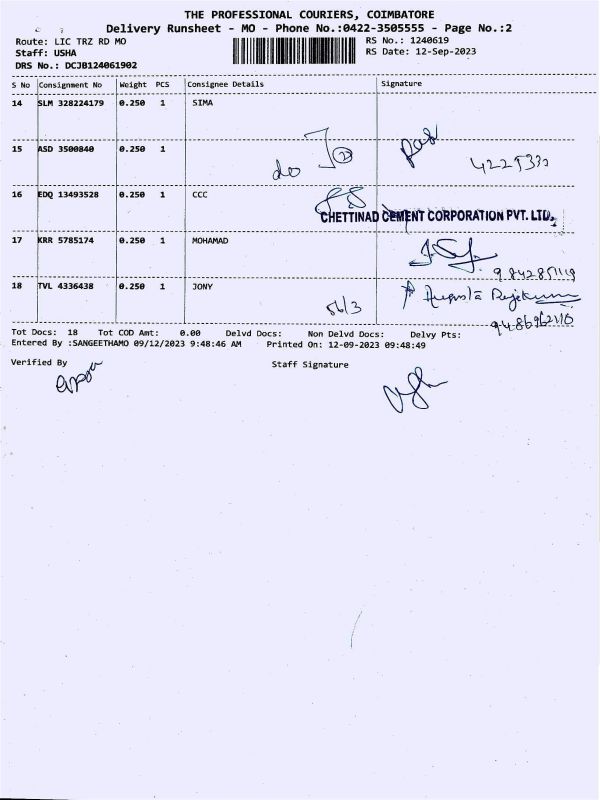 THE PROFESSIONAL COURIERS, COIMBATORE
Delivery Runsheet - MO - Phone No.:0422-3505555 - Page No.:2
Route: LIC TRZ RD MO RS No.: 1240619
Staff: USHA RS Date: 12-Sep-2023
DRS No.: DCJB124061902
S No Consignment No Weight PCS Consignee Details Signature
14 SLM 328224179 0.250 1 SIMA
15 ASD 3500840 0.250 1
do
16 EDQ 13493528 0.250 1 CCC
CHETTINAD CEMENT CORPORATION PVT. LTD.,
17 KRR 5785174 0.250 1 MOHAMAD
9842851119
18 TVL 4336438 0.250 1 JONY
56/3
9486962110
Tot Docs: 18 Tot COD Amt: 0.00 Delvd Docs: Non Delvd Docs: Delvy Pts:
Entered By :SANGEETHAMO 09/12/2023 9:48:46 AM Printed On: 12-09-2023 09:48:49
Verified By Staff Signature